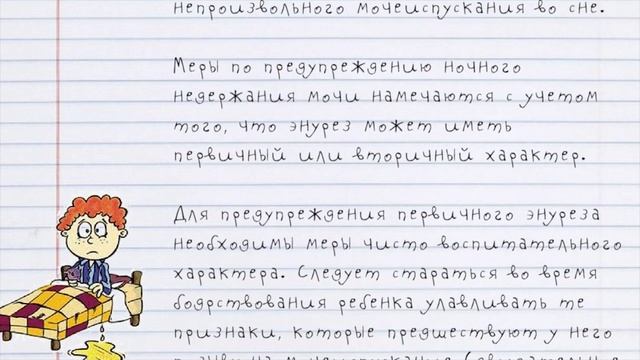 непроизвольного мочеиспускания во сне.
Меры по предупреждению ночного
недержания мочи намечаются с учетом
того, что энурез может иметь
первичный или вторичный характер.
Для предупреждения первичного энуреза
необходимы меры чисто воспитательного
характера. Следует стараться во время
бодрствования ребенка улавливать те
признаки, которые предшествуют у него